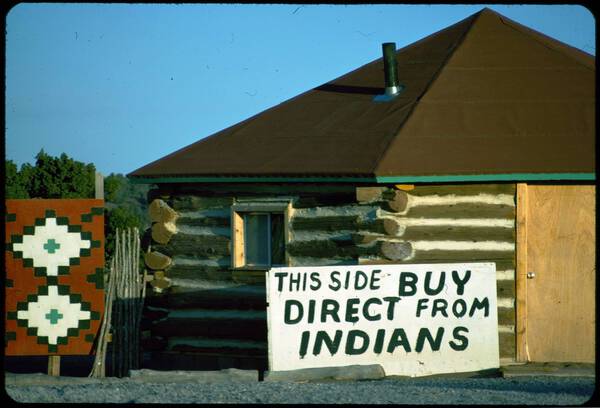 THIS SIDE BUY
DIRECT FROM
INDIANS